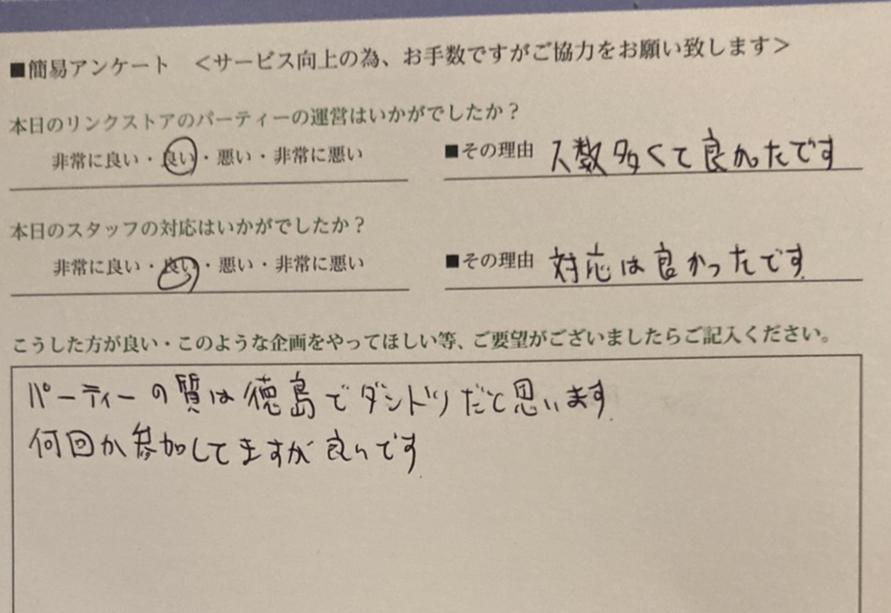 ■簡易アンケート ＜サービス向上の為、お手数ですがご協力をお願い致します＞
本日のリンクストアのパーティーの運営はいかがでしたか？
非常に良い・良い・悪い・非常に悪い ■その理由 人数多くて良かったです
本日のスタッフの対応はいかがでしたか？
非常に良い・良い・悪い・非常に悪い ■その理由 対応は良かったです
こうした方が良い・このような企画をやってほしい等、ご要望がございましたらご記入ください。
パーティーの質は徳島でダントツだと思います
何回か参加してますが良いです